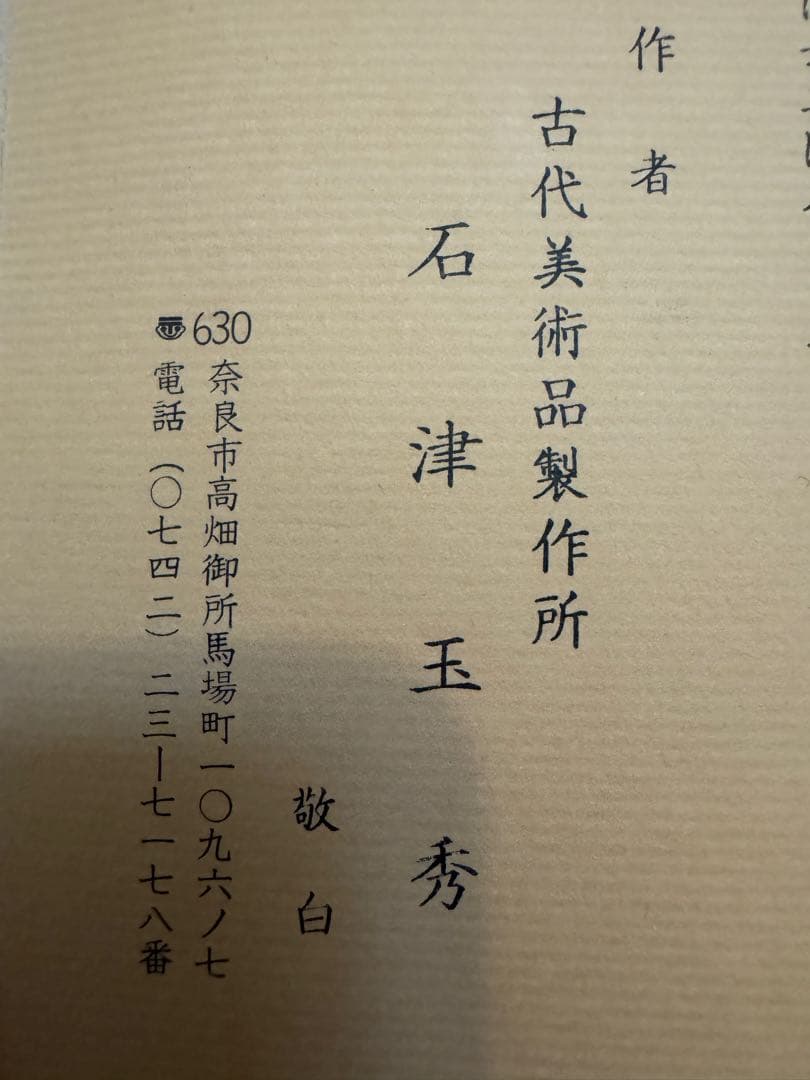 作者
古代美術品製作所
石津玉秀
敬白
630 奈良市高畑御所馬場町一〇九六ノ七
電話(〇七四二)二三ー七一七八番